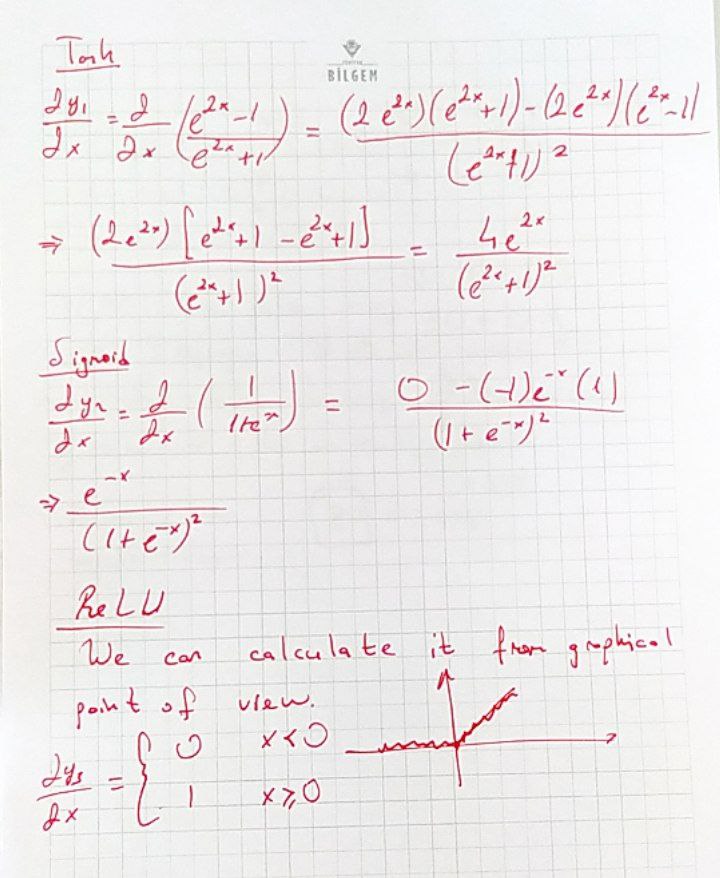 Tanh
TÜBİTAK
BİLGEM
∂y₁/∂x = ∂/∂x ((e^{2x} - 1)/(e^{2x} + 1)) = ((2e^{2x})(e^{2x}+1) - (2e^{2x})(e^{2x}-1))/(e^{2x}+1)^2
⇒ ((2e^{2x})[e^{2x}+1 - e^{2x}+1])/(e^{2x}+1)^2 = 4e^{2x}/(e^{2x}+1)^2
Sigmoid
∂y₂/∂x = ∂/∂x (1/(1+e^{-x})) = (0 - (-1)e^{-x}(1))/(1+e^{-x})^2
⇒ e^{-x}/(1+e^{-x})^2
ReLU
We can calculate it from graphical
point of view.
∂y₃/∂x = { 0 x<0
1 x≥0